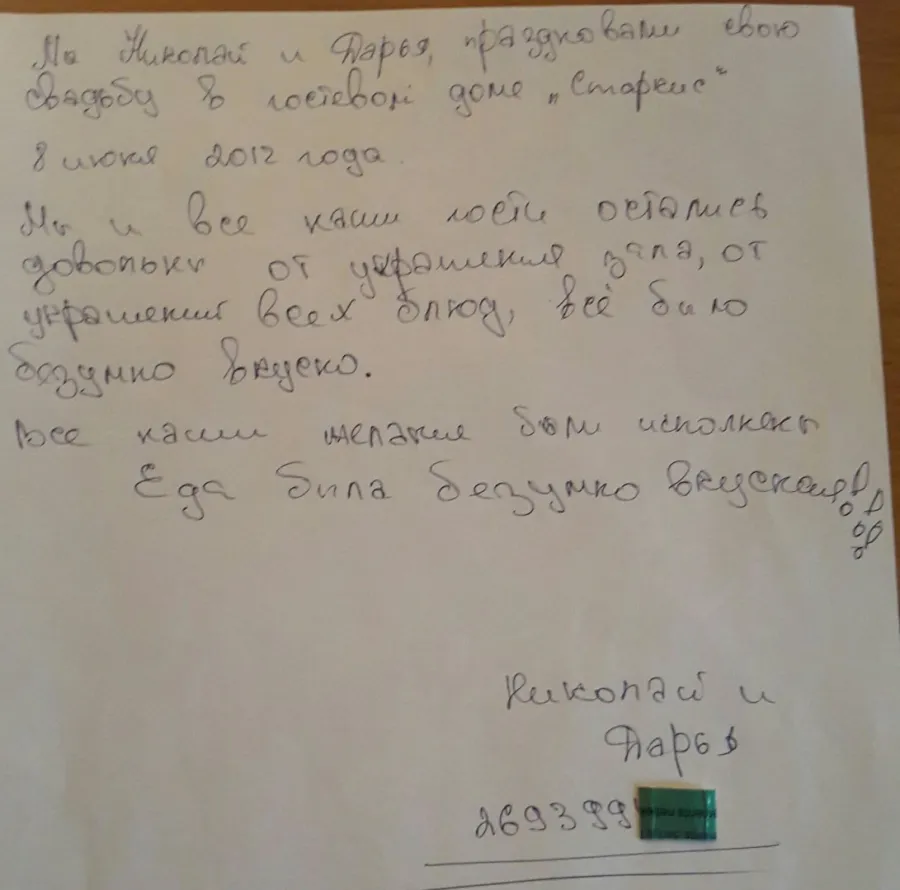 Мы Николай и Дарья, праздновали свою
свадьбу в гостевом доме „Старкис“
8 июня 2012 года.
Мы и все наши гости остались
довольны от украшения зала, от
украшений всех блюд, всё было
безумно вкусно.
Все наши желания были исполнены
Еда была безумно вкусная!!!
Николай и
Дарья
2693991